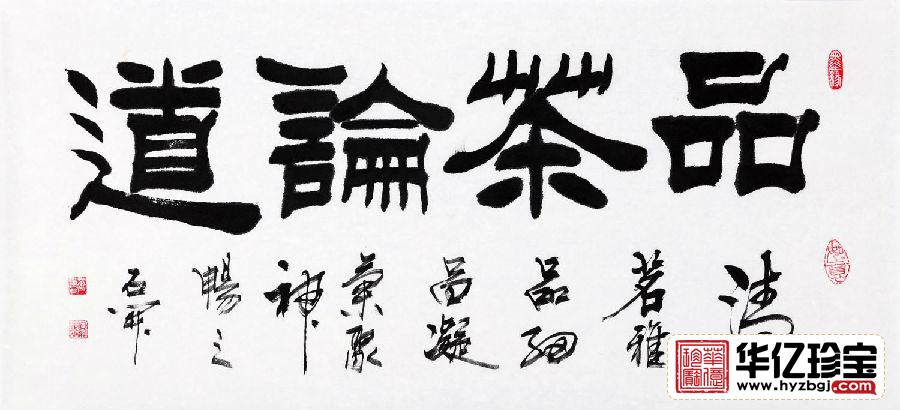 品茶論道
清
茗雅
品細
品凝
氣聚
神
暢之
石開
华亿珍宝
www.hyzbgj.com